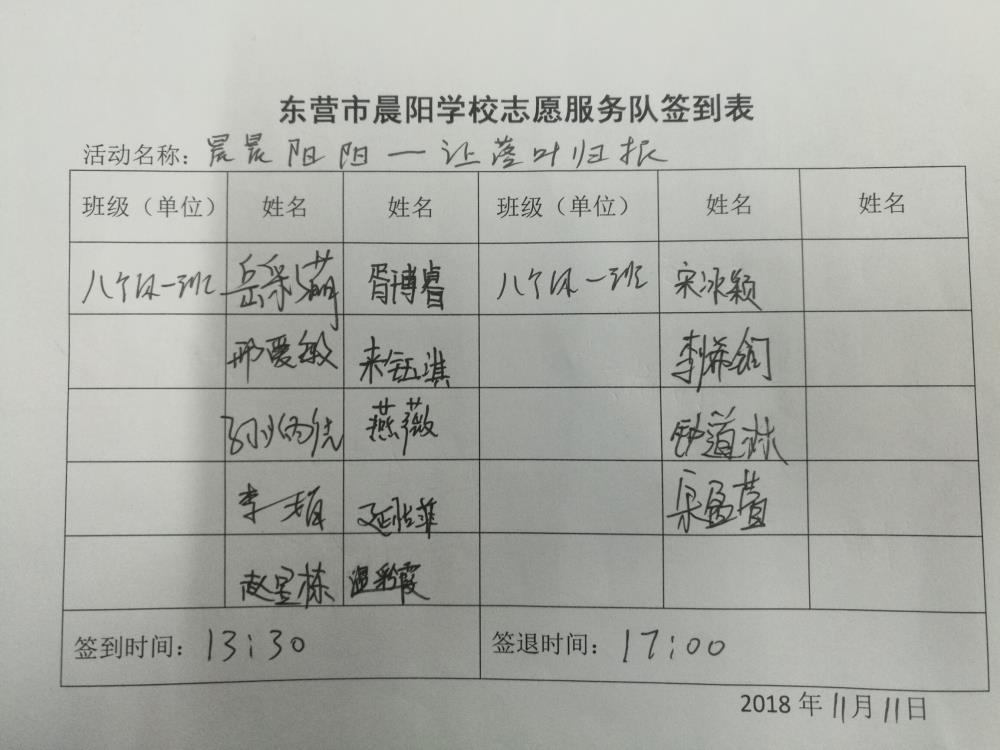 东营市晨阳学校志愿服务队签到表
活动名称：晨晨阳阳一让落叶归根
班级（单位） 姓名 姓名 班级（单位） 姓名 姓名
八个体一班 岳采萌 胥博睿 八个体一班 宋冰颖
邢爱敏 来钰淇 李希
燕薇 钟道林
李 延 菲 孟萱
赵星栋 温彩霞
签到时间：13:30 签退时间：17:00
2018年11月11日